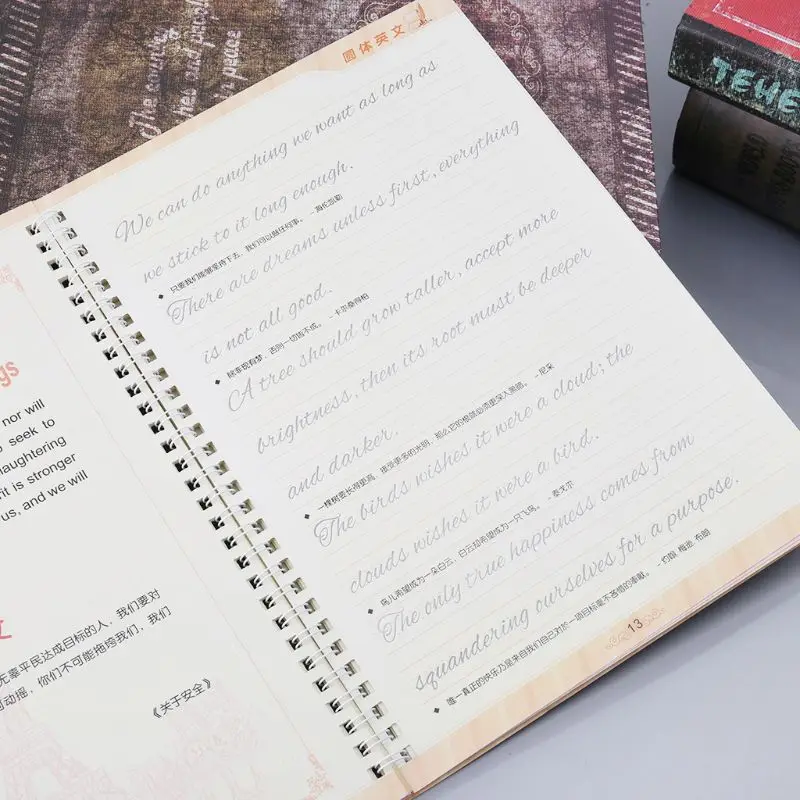 圆体英文
We can do anything we want as long as
we stick to it long enough.
只要我们能够坚持下去，我们可以做任何事。 -海伦凯勒
There are dreams unless first, everything
is not all good.
除非现有梦，否则一切皆不成。 -卡尔桑得柏
A tree should grow taller, accept more
brightness, then its root must be deeper
and darker.
一棵树要长得更高，接受更多的光明，那么它的根就必须更深入黑暗。 -尼采
The birds wishes it were a cloud; the
clouds wishes it were a bird.
鸟儿希望成为一朵白云，白云却希望成为一只飞鸟。 -泰戈尔
The only true happiness comes from
squandering ourselves for a purpose.
唯一真正的快乐乃是来自我们自己对於一项目标毫不吝惜的奉献。 -约翰 梅逊 布朗
13
gs
nor will
seek to
laughtering
it is stronger
us, and we will
文
无辜平民达成目标的人，我们要对
动摇，你们不可能拖垮我们，我们
《关于安全》
The country
and people
peace